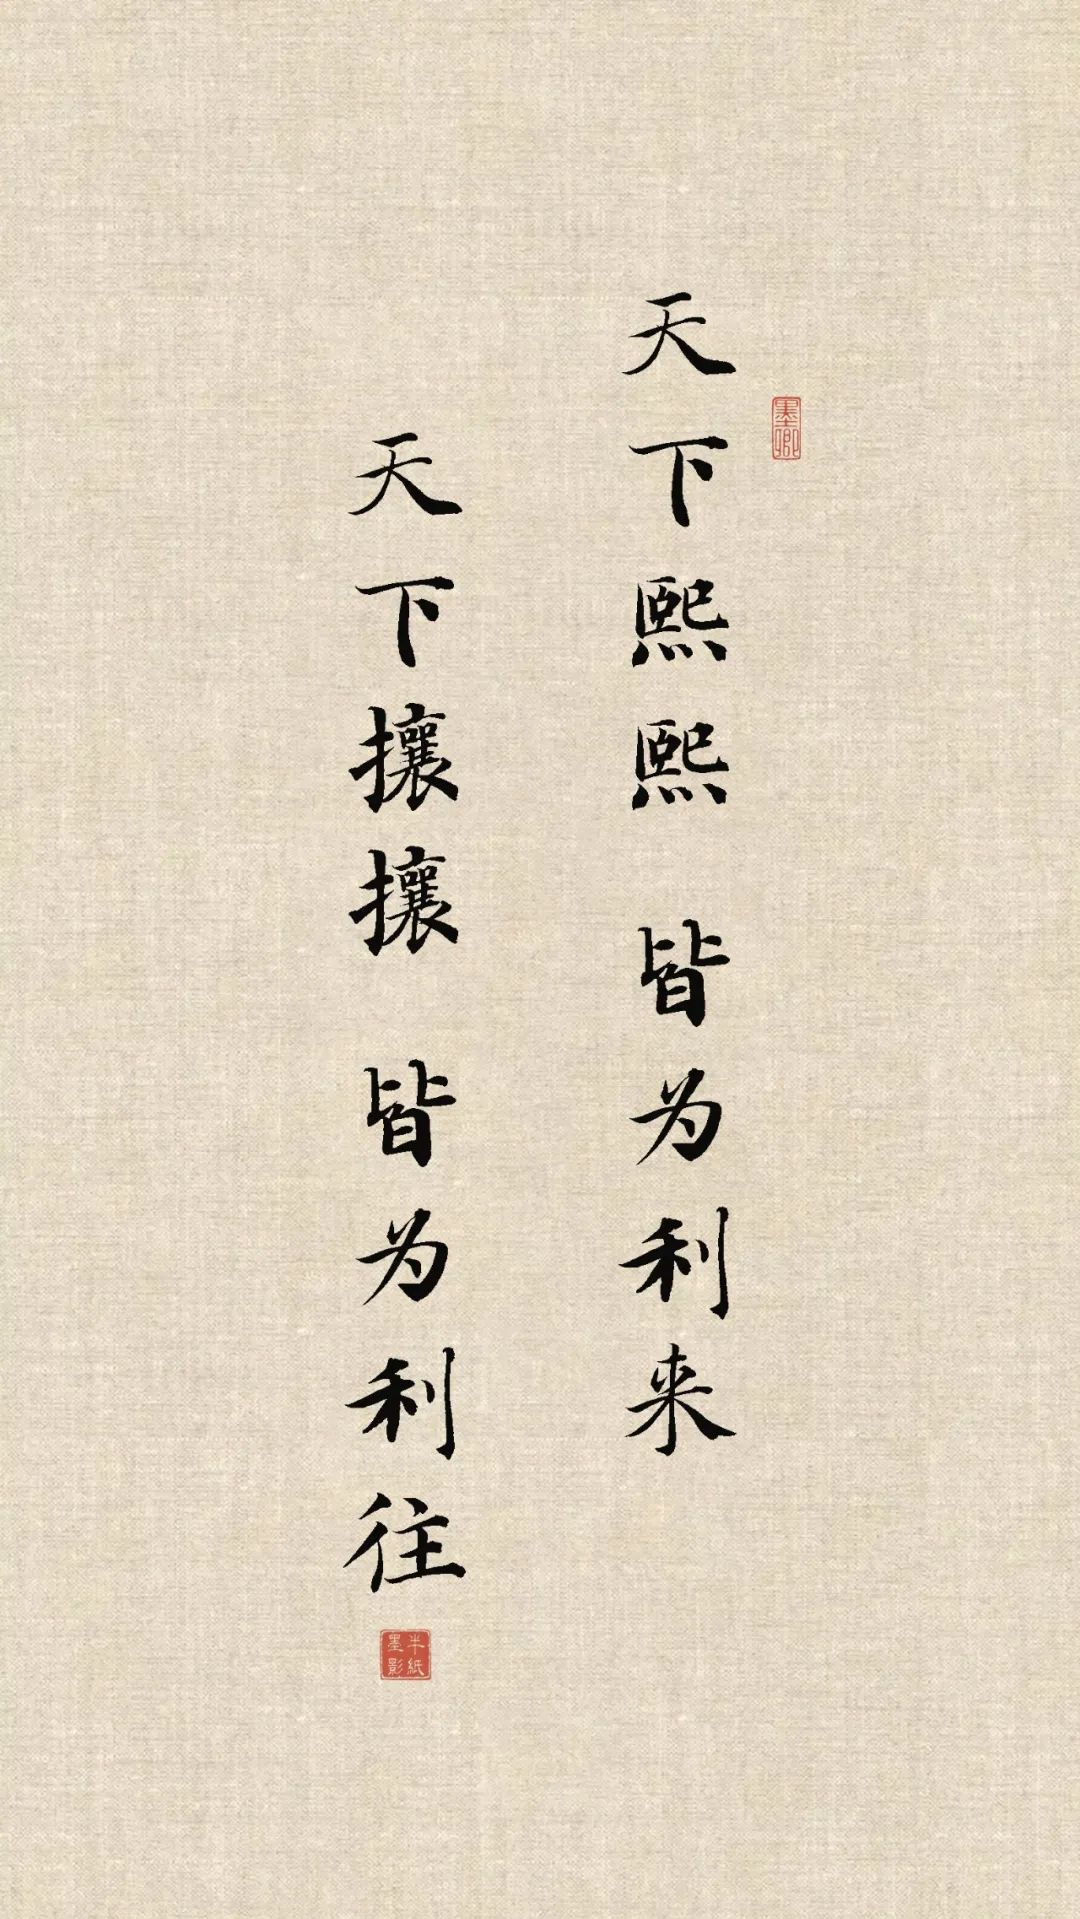 天下熙熙 皆为利来
墨卿
天下攘攘 皆为利往
半紙墨影